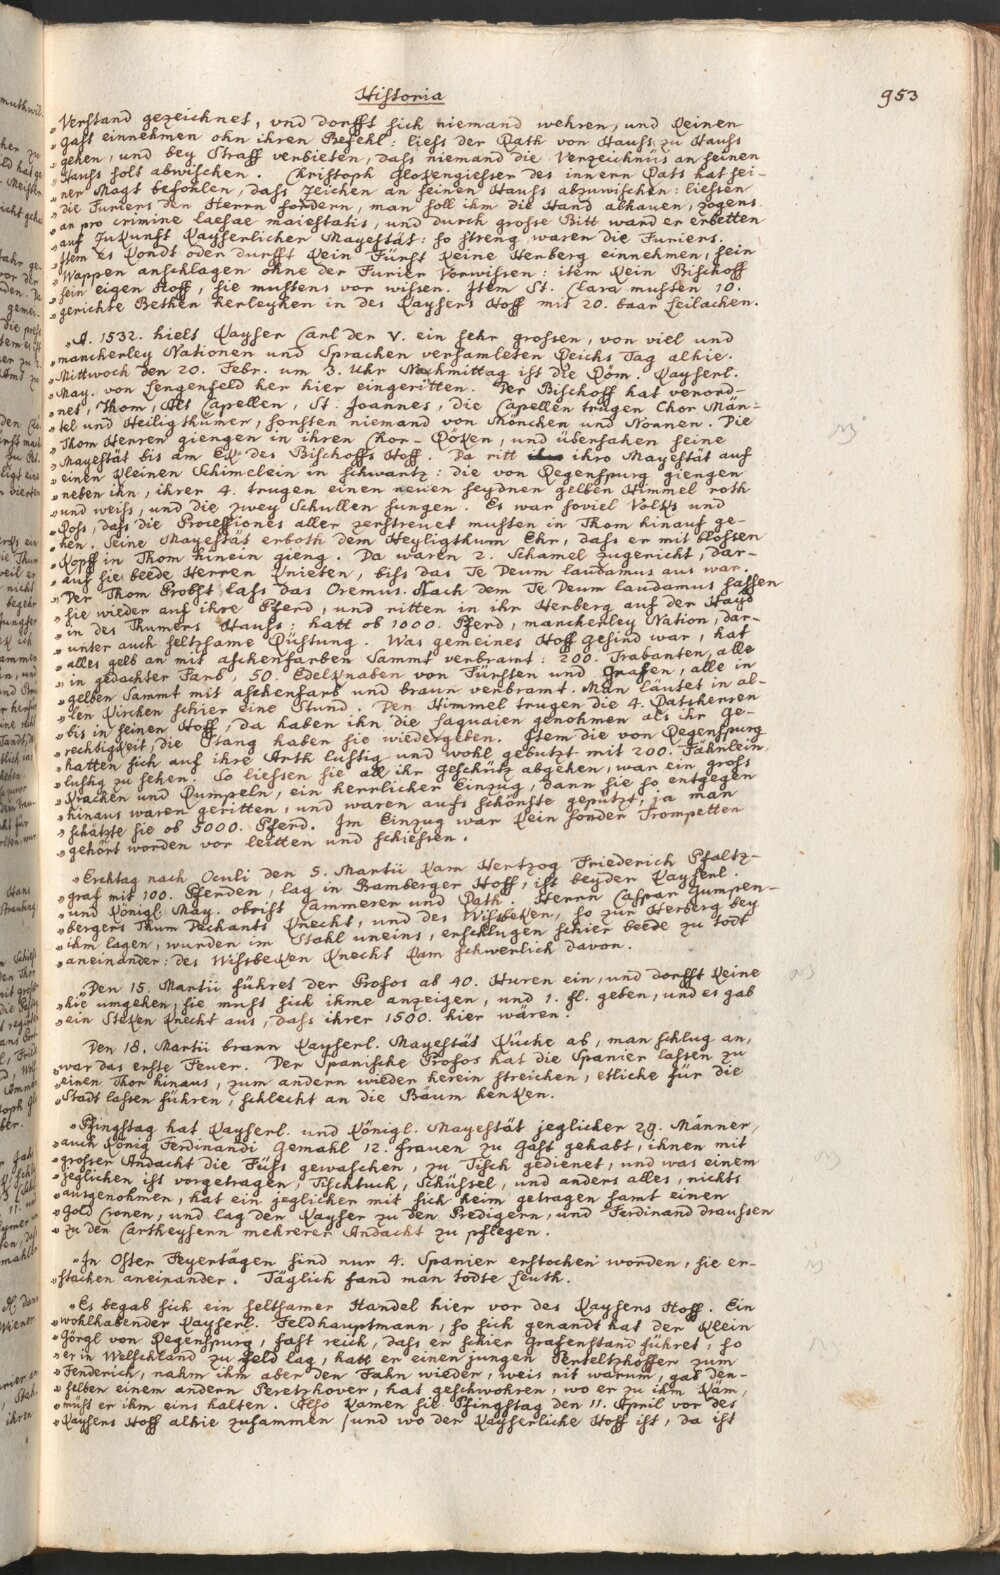 Historia
953
„Verstand gezeichnet, vnd dorfft sich niemand wehren, und keinen
„Gast einnehmen ohn ihren Befehl: liess der Rath von Hauss zu Hauss
„gehen, und bey Straff verbieten, dass niemand die Verzeichnüs an seinen
„Hauss solt abwischen. Christoph Glokengiesser des innern Rats hat sei-
„ner Magt befohlen, dass Zeichen an seinen Hauss abzuwischen: liessen
„die Furiers den Herrn fordern, man soll ihm die Hand abhauen, zogens
„an pro crimine laesae maiestatis, und durch grosse Bitt ward er erbetten
„auf Zukunft Kayserlicher Mayestät: so streng waren die Furiers.
„Item es kondt oder durfft kein Fürst keine Herberg einnehmen, sein
„Wappen anschlagen ohne der Furier Vorwissen: item kein Bischoff
„sein eigen Hoff, sie mustens vor wissen. Item St. Clara musten 10.
„gerichte Bethen herleyhen in des Kaysers Hoff mit 20. baar Leilachen.
„A. 1532. hielt Kayser Carl der V. ein sehr grossen, von viel und
„mancherley Nationen und Sprachen versamleten Reichs Tag alhie.
„Mittwoch den 20. Febr. um 3. Uhr Nachmittag ist die Röm. Kayserl.
„May. von Lengenfeld her hier eingeritten. Der Bischoff hat verord-
„net, Thom, Alt Capellen, St. Joannes, die Capellen trugen Chor Män-
„tel und Heiligthümer, sonsten niemand von Mönchen und Nonnen. Die
„Thom Herren giengen in ihren Chor-Röken, und übersahen seine
„Mayestät bis am Ek des Bischoffs Hoff. Da ritt ihro Mayestät auf
„einen kleinen Schimelein in schwartz: die von Regenspurg giengen
„neben ihn, ihrer 4. trugen einen neuen seydnen gelben Himmel roth
„und weiss, und die zwey Schullen sungen. Es war soviel Volks und
„Ross, dass die Processiones aller zerstreuet musten in Thom hinauf ge-
„hen. Seine Mayestät erboth dem Heyligthum Ehr, dass er mit blossen
„Kopff in Thom hinein gieng. Da waren 2. Schamel zugericht, dar-
„auf sie beede Herren knieten, biss das Te Deum laudamus aus war.
„Der Thom Probst lass das Oremus. Nach dem Te Deum laudamus sassen
„sie wieder auf ihre Pferd, und ritten in ihr Herberg auf der Hayd
„in des Thumers Hauss: hatt ob 1000. Pferd, mancherley Nation, dar-
„unter auch seltzsame Rüstung. Was gemeines Hoff gesind war, hat
„alles gelb an mit aschenfarben Sammt verbramt: 200. Trabanten, alle
„in gedachter Farb, 50. Edelknaben von Fürsten und Grafen, alle in
„gelben Sammt mit aschenfarb und braun verbramt. Man läutet in al-
„len Kirchen schier eine Stund. Den Himmel trugen die 4. Ratsherren
„bis in seinen Hoff, da haben ihn die Laquaien genohmen als ihr Ge-
„rechtigkeit, die Stang haben sie wiedergeben. Item die von Regenspurg
„hatten sich auf ihre Arth lustig und wohl gebutzt mit 200. Fähnlein,
„lustig zu sehen. So liessen sie all ihr Geschütz abgehen, war ein gross
„Krachen und Rumpeln, ein herrlicher Einzug, dann sie so entgegen
„hinaus waren geritten, und waren aufs schönste geputzt, ja man
„schätzte sie ob 5000. Pferd. Im Einzug war kein sonder Trompetten
„gehört worden vor leitten und schiessen.
„Erchtag nach Oculi den 5. Martii kam Hertzog Friederich Pfaltz-
„graf mit 100. Pferden, lag in Bamberger Hoff, ist beyder Kayserl.
„und Königl. May. obrist Cammerer und Rath. Herrn Caspar Gumpen-
„bergers Thum Dechants Knecht, und des Wissbeken, so zur Herberg bey
„ihm lagen, wurden im Stahl uneins, erschlugen schier beede zu todt
„aneinander: des Wissbeken Knecht kam schwerlich davon.
„Den 15. Martii führet der Profos ab 40. Huren ein, und dorfft keine
„hie umgehen, sie must sich ihme anzeigen, und 1. fl. geben, und es gab
„ein Steken Knecht aus, dass ihrer 1500. hier wären.
Den 18. Martii brann Kayserl. Mayestät Küche ab, man schlug an,
„war das erste Feuer. Der Spanische Profos hat die Spanier lassen zu
„einen Thor hinaus, zum andern wieder herein streichen, etliche für die
„Stadt lassen führen, schlecht an die Bäum henken.
„Pfingstag hat Kayserl. und Königl. Mayestät jeglicher 29. Männer,
„auch König Ferdinandi Gemahl 12. Frauen zu Gast gehabt, ihnen mit
„grosser Andacht die Füss gewaschen, zu Tisch gedienet, und was einem
„jeglichen ist vorgetragen, Tischtuch, Schüssel, und anders alles, nichts
„ausgenohmen, hat ein jeglicher mit sich heim getragen samt einen
„Gold Cronen, und lag der Kayser zu den Predigern, und Ferdinand draussen
„zu den Cartheysern mehrerer Andacht zu pflegen.
„In Oster Feyertägen sind nur 4. Spanier erstochen worden, sie er-
„stachen aneinander. Täglich fand man todte Leuth.
„Es begab sich ein seltsamer Handel hier vor des Kaysers Hoff. Ein
„wohlhabender Kayserl. Feldhauptmann, so sich genandt hat der Klein
„Görgl von Regenspurg, fast reich, dass er schier Grafenstand führet, so
„er in Welschland zu Feld lag, hatt er einen jungen Perteltzhoffer zum
„Fenderich, nahm ihm aber den Fahn wieder, weis nit warum, gab den-
„selben einem andern Peretzhover, hat geschwohren, wo er zu ihm käm,
„müst er ihm eins halten. Also kamen sie Pfingstag den 11. April vor des
„Kaysers Hoff alhie zusammen (und wo der Kayserliche Hoff ist, da ist